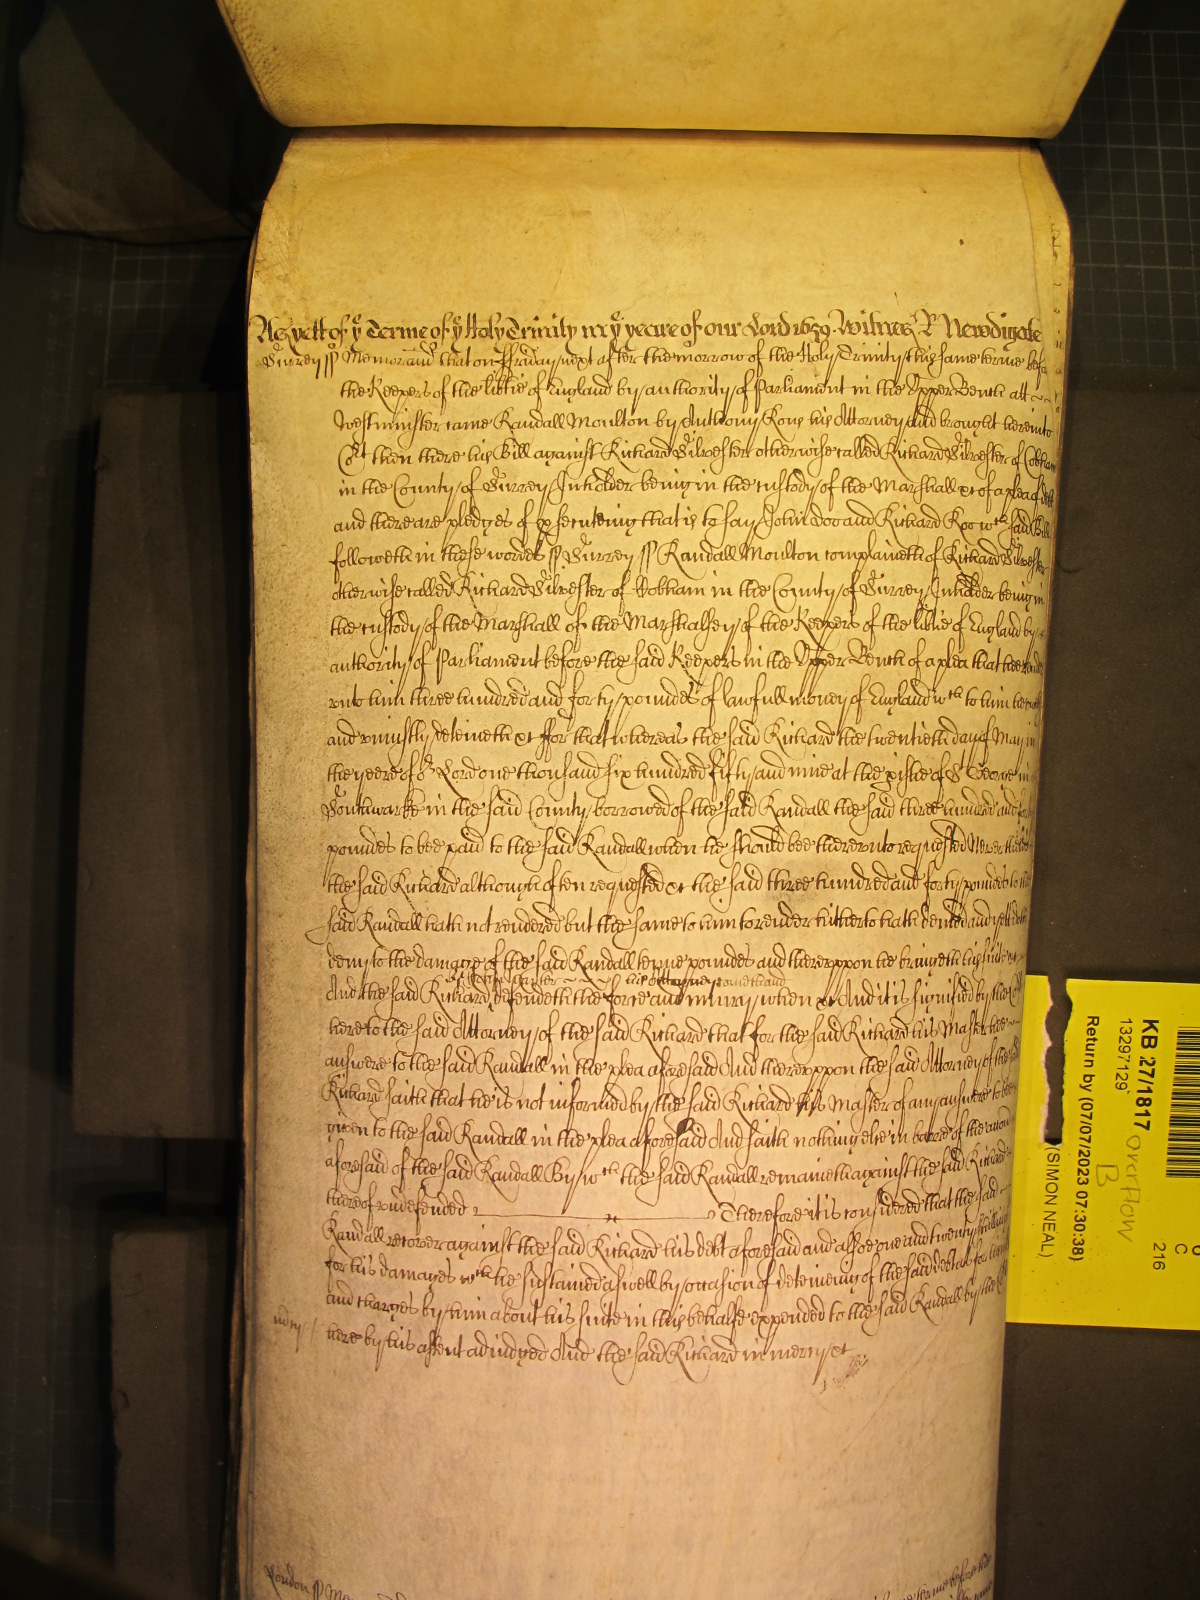 As yett of ye Terme of ye Holy Trinity in ye yeare of our Lord 1659. Witnes R Newdigate
Surrey ss Memorand that on ffryday next after the morrow of the Holy Trinity this same terme befo
the Keepers of the lib'tie of England by authority of Parliament in the Upper Bench att
Westminster came Randall Moulton by Anthony Rous his Attorney and brought here into
Cort then there his Bill against Richard Silvester otherwise called Richard Silvester of Cobham
in the County of Surrey Inholder being in the custody of the Marshall &c of a plea of debt
and there are pledges of p'secuteing that is to say John Doo and Richard Roo wch said Bill
followeth in these wordes ss Surrey ss Randall Moulton complaineth of Richard Silvester
otherwise called Richard Silvester of Cobham in the County of Surrey Inholder being in
the custody of the Marshall of the Marshalsey of the Keepers of the lib'tie of England by
authority of Parliament before the said Keepers in the Upper Bench of a plea that hee render
unto him three hundred and forty poundes of lawfull money of England wch to him he oweth
and uniustly deteineth &c For that whereas the said Richard the twentieth day of May in
the yeere of or Lord one thousand six hundred fifty and nine at the p'ishe of St George in
Southwarke in the said County borrowed of the said Randall the said three hundred and forty
poundes to bee paid to the said Randall when he should bee thereunto requested Neverthelesse
the said Richard although often requested &c the said three hundred and forty poundes to the
said Randall hath not rendered but the same to him to render hitherto hath denied and yett doth
deny to the damage of the said Randall tenne poundes and thereuppon he bringeth his suite &c
his Attorney cometh and
And the said Richard defendeth the force and iniury when &c And it is signified by the Cort
here to the said Attorney of the said Richard that for the said Richard his Master hee
answere to the said Randall in the plea aforesaid And thereuppon the said Attorney of the said
Richard saith that he is not informed by the said Richard his Master of any answere to bee
given to the said Randall in the plea aforesaid And saith nothing else in barre of the accon
aforesaid of the said Randall By wch the said Randall remaineth against the said Richard
thereof undefended Therefore it is considered that the said
Randall recover against the said Richard his debt aforesaid and alsoe one and twenty shillings
for his damages wch he sustained aswell by occasion of deteineing of the said debt as for his
and charges by him about his suite in this behalfe expended to the said Randall by the Cort
here by his assent adiudged And the said Richard in mercy &c
London ss
KB 27/1817
13297129
Return by (07/07/2023 07:30:38)
(SIMON NEAL)
overflow
B
216
C